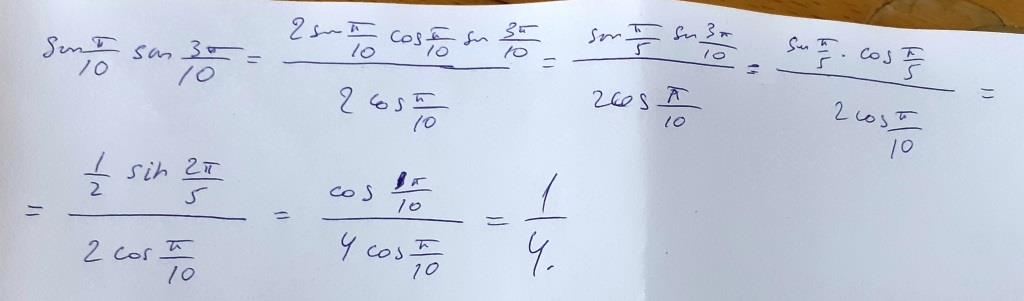 sin π/10 sin 3π/10 = (2 sin π/10 cos π/10 sin 3π/10)/(2 cos π/10) = (sin π/5 sin 3π/10)/(2 cos π/10) = (sin π/5 · cos π/5)/(2 cos π/10) =
= (1/2 sin 2π/5)/(2 cos π/10) = (cos 1π/10)/(4 cos π/10) = 1/4.